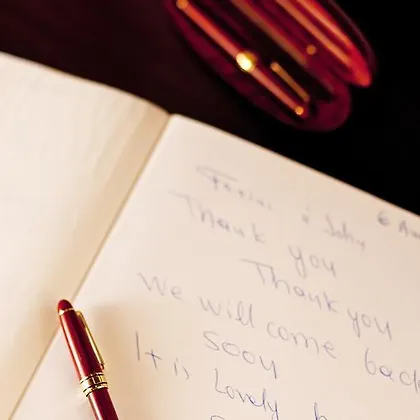 & John 6 Au
Thank you
Thank you
We will come back
soon
It is Lovely